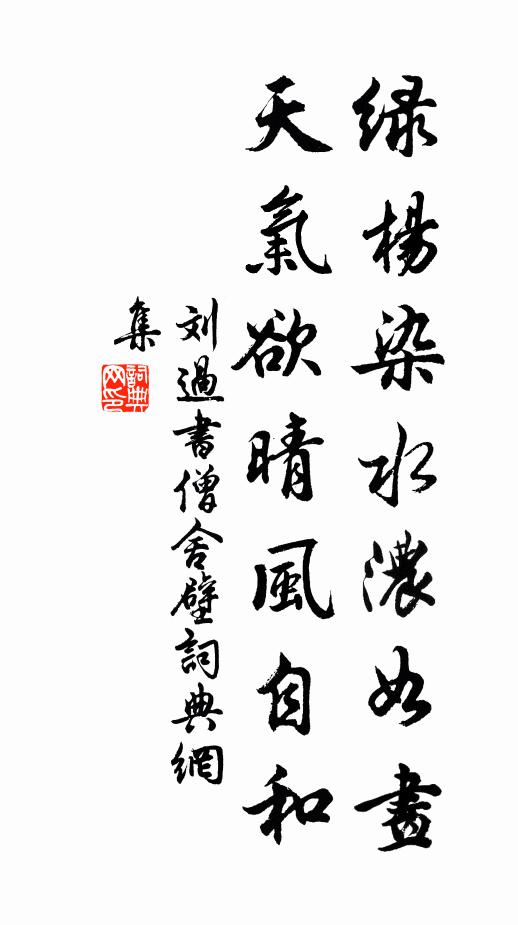 绿楊染水濃如畫
天氣欲晴風自和
刘過書僧舍壁詞典網
集
詞典
网印